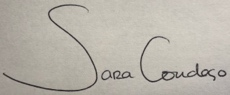 Sara Condeço